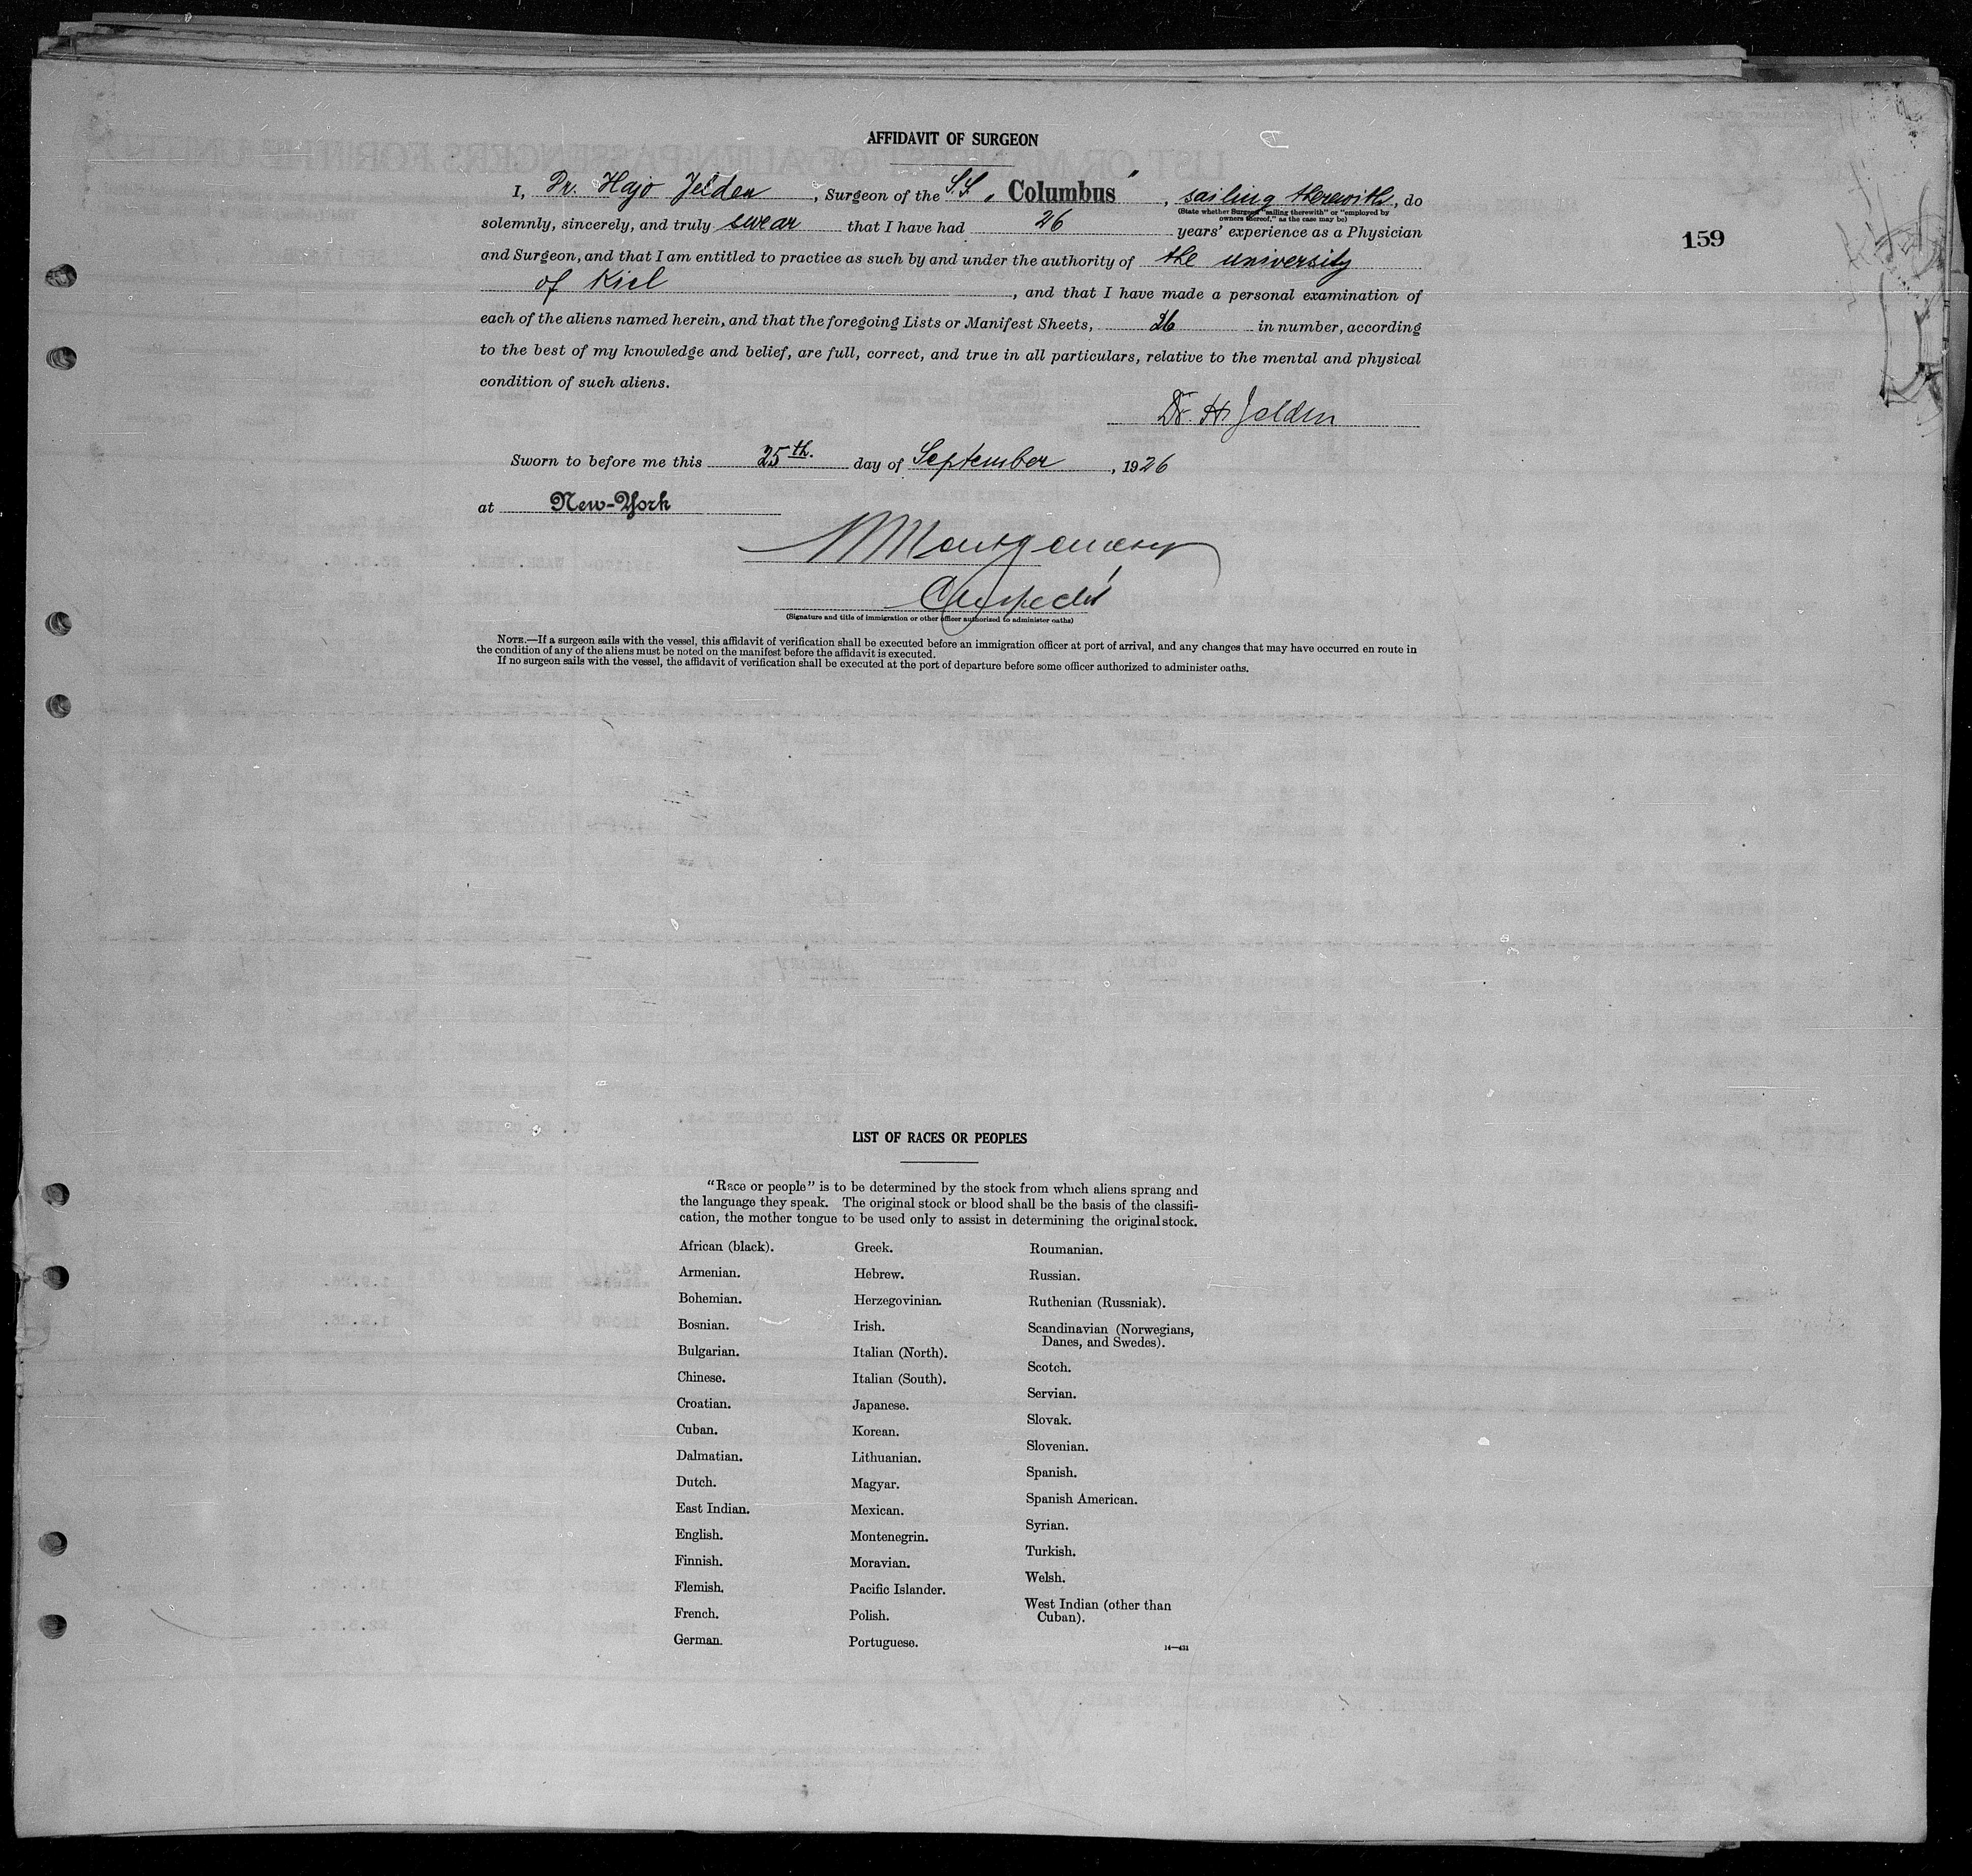 AFFIDAVIT OF SURGEON
I, Dr. Hajo Jelden, Surgeon of the S.S. „Columbus“, sailing therewith, do
(State whether Surgeon “sailing therewith” or “employed by
owners thereof,” as the case may be)
159
solemnly, sincerely, and truly swear that I have had 26 years’ experience as a Physician
and Surgeon, and that I am entitled to practice as such by and under the authority of the university
of Kiel, and that I have made a personal examination of
each of the aliens named herein, and that the foregoing Lists or Manifest Sheets, 26 in number, according
to the best of my knowledge and belief, are full, correct, and true in all particulars, relative to the mental and physical
condition of such aliens.
Dr. H. Jelden
Sworn to before me this 25th. day of September, 1926
at New-York
Montgomery
(Signature and title of immigration or other officer authorized to administer oaths)
NOTE.—If a surgeon sails with the vessel, this affidavit of verification shall be executed before an immigration officer at port of arrival, and any changes that may have occurred en route in
the condition of any of the aliens must be noted on the manifest before the affidavit is executed.
If no surgeon sails with the vessel, the affidavit of verification shall be executed at the port of departure before some officer authorized to administer oaths.
LIST OF RACES OR PEOPLES
“Race or people” is to be determined by the stock from which aliens sprang and
the language they speak. The original stock or blood shall be the basis of the classifi-
cation, the mother tongue to be used only to assist in determining the original stock.
African (black).
Armenian.
Bohemian.
Bosnian.
Bulgarian.
Chinese.
Croatian.
Cuban.
Dalmatian.
Dutch.
East Indian.
English.
Finnish.
Flemish.
French.
German.
Greek.
Hebrew.
Herzegovinian.
Irish.
Italian (North).
Italian (South).
Japanese.
Korean.
Lithuanian.
Magyar.
Mexican.
Montenegrin.
Moravian.
Pacific Islander.
Polish.
Portuguese.
Roumanian.
Russian.
Ruthenian (Russniak).
Scandinavian (Norwegians,
Danes, and Swedes).
Scotch.
Servian.
Slovak.
Slovenian.
Spanish.
Spanish American.
Syrian.
Turkish.
Welsh.
West Indian (other than
Cuban).
14—431